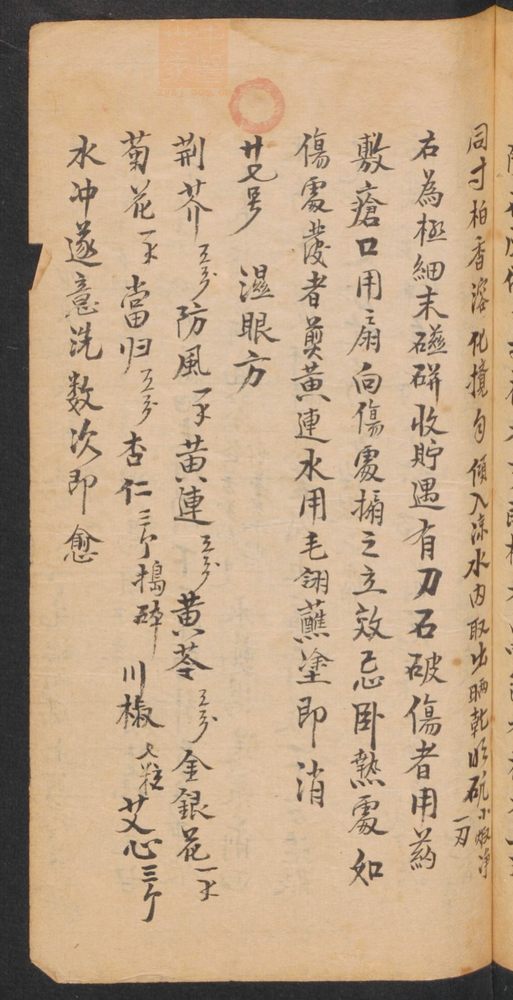 同寸柏香溶化攪勻傾入涼水內取出晒乾
右為極細末磁硑收貯遇有刀石破傷者用药
敷瘡口用扇向傷處搧之立效忌卧熱處如
傷處發者煎黃連水用毛翎蘸塗即消
廿七号　濕眼方
荆芥五分防風一錢黃連五分黃芩五分金銀花一錢
菊花一錢當归五分杏仁三个搗碎川椒七粒艾心三个
水冲遂意洗数次即愈